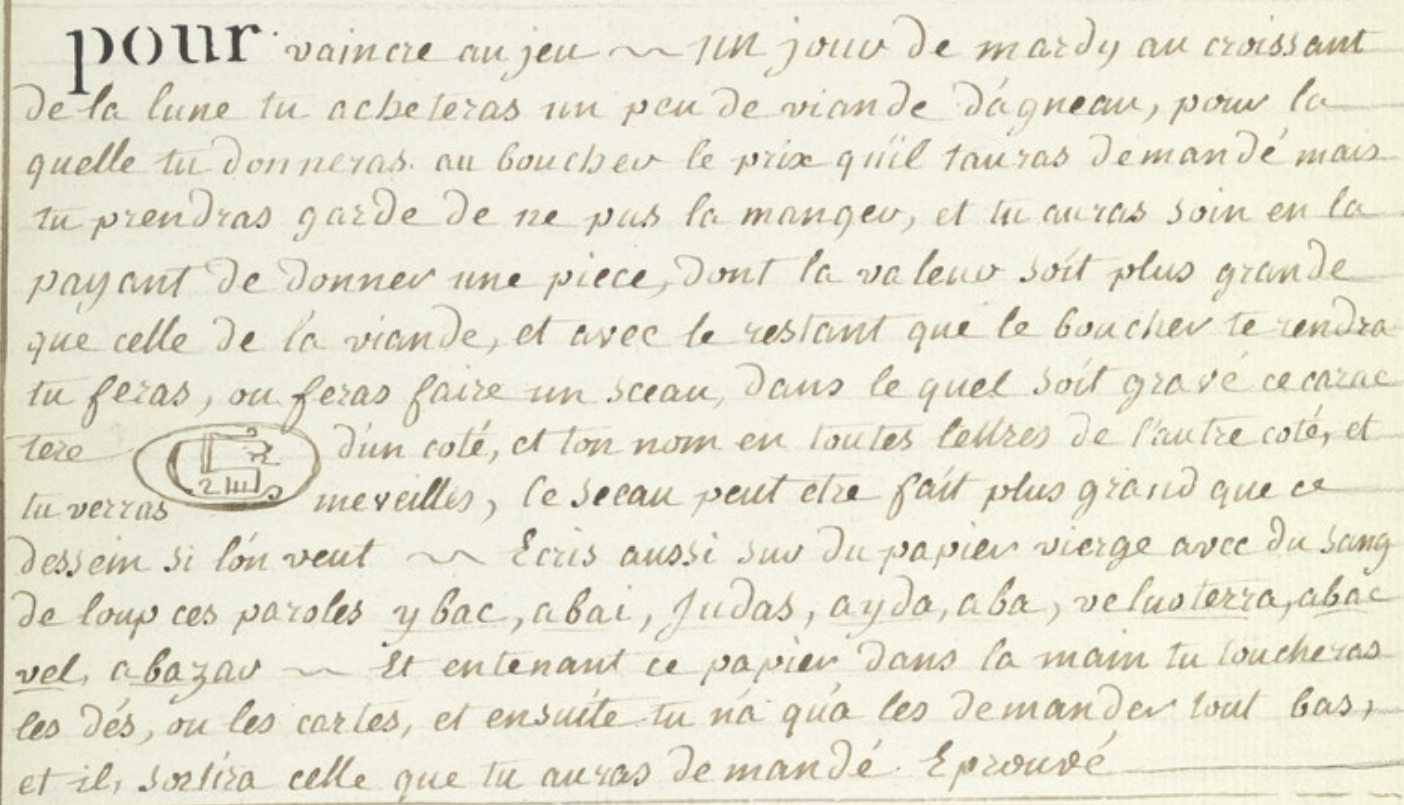 pour vaincre au jeu ~ un jour de mardy au croissant
de la lune tu acheteras un peu de viande d'agneau, pour la
quelle tu donneras au boucher le prix qu'il t'auras demandé mais
tu prendras garde de ne pas la manger, et tu auras soin en la
payant de donner une piece, dont la valeur soit plus grande
que celle de la viande, et avec le restant que le boucher te rendra
tu feras, ou feras faire un sceau, dans le quel soit gravé ce carac
tere d'un coté, et ton nom en toutes lettres de l'autre coté, et
tu verras merveilles, le sceau peut etre fait plus grand que ce
dessein si l'on veut ~ Ecris aussi sur du papier vierge avec du sang
de loup ces paroles ybac, abai, Judas, ayda, aba, abac
vel, abazar ~ Et entenant ce papier dans la main tu toucheras
les dés, ou les cartes, et ensuite tu n'a qu'a les demander tout bas,
et il, sortira celle que tu auras demandé Eprouvé